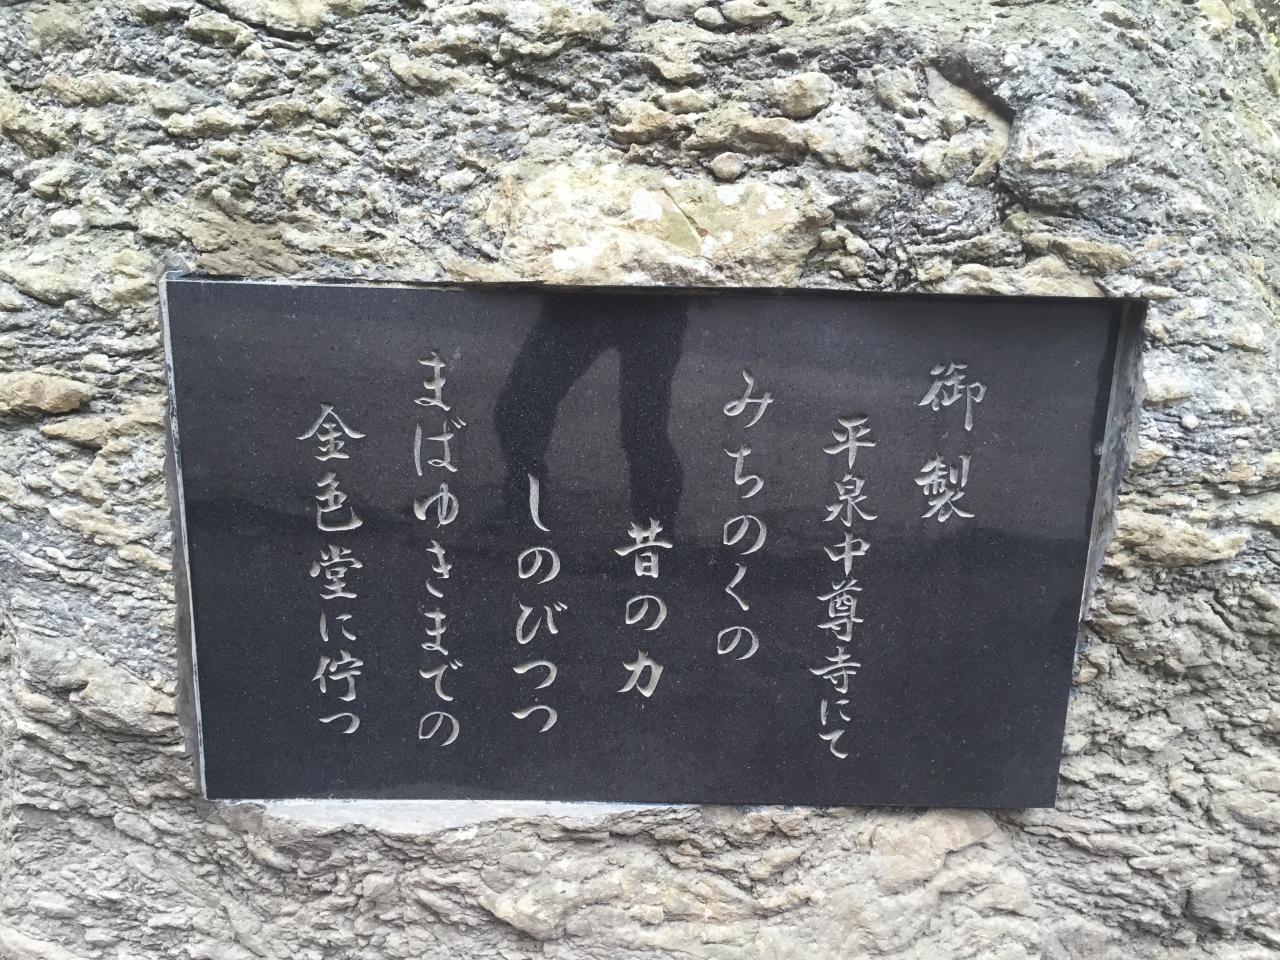 御製
平泉中尊寺にて
みちのくの
昔の力
しのびつつ
まばゆきまでの
金色堂に佇つ